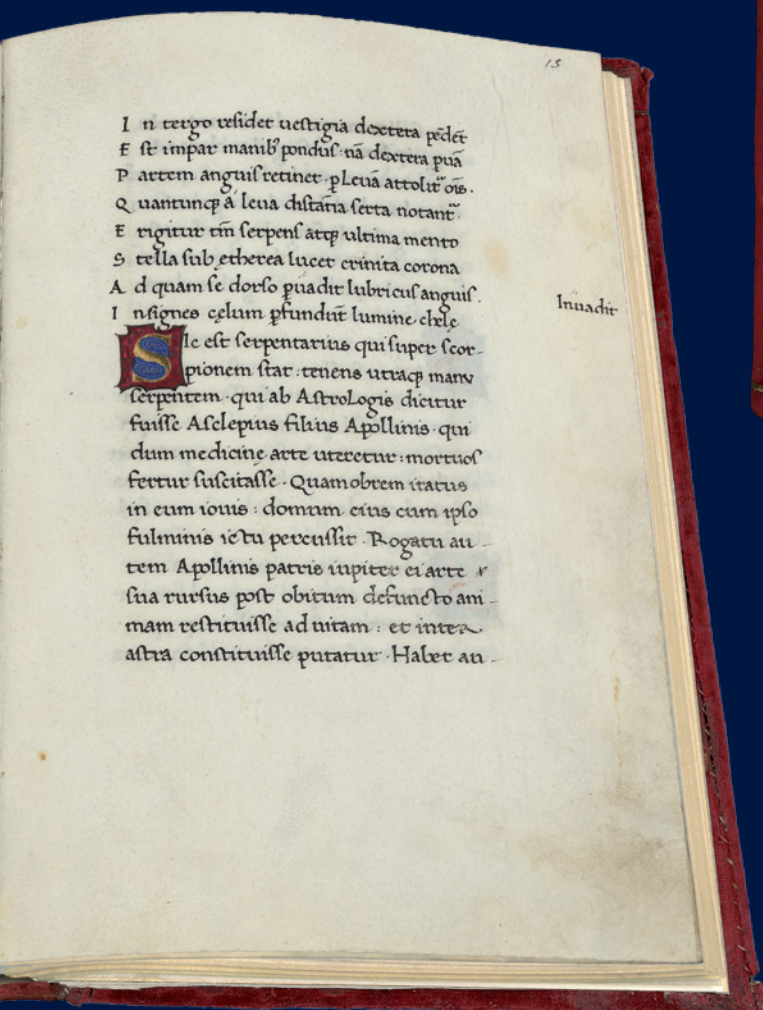 15
I n tergo residet uestigia dextera pēdēt
E st impar manibꝰ pondus: nā dextera ꝑuā
P artem anguis retinet · ꝑ Leuā attolit᷑ oīs.
Q uantunqꝫ á leua distātia serta notant᷑
E rigitur tm̄ serpens atqꝫ ultima mento
S tella sub ętherea lucet crinita corona
A d quam se dorso ꝑuadit lubricus anguis.
I nsignes cęlum ꝑfundūt lumine chelę
Inuadit
SIc est serpentarius qui super scor-
pionem stat: tenens utraqꝫ manu
serpentem · qui ab AstroLogis dicitur
fuisse Asclepius filius Apollinis · qui
dum medicinę arte uteretur: mortuos
fertur suscitasse · Quamobrem iratus
in eum iouis: domum eius cum ipso
fulminis ictu percussit · Rogatu au-
tem Apollinis patris iupiter ei arte
sua rursus post obitum defuncto ani-
mam restituisse ad uitam: et inter
astra constituisse putatur · Habet au-